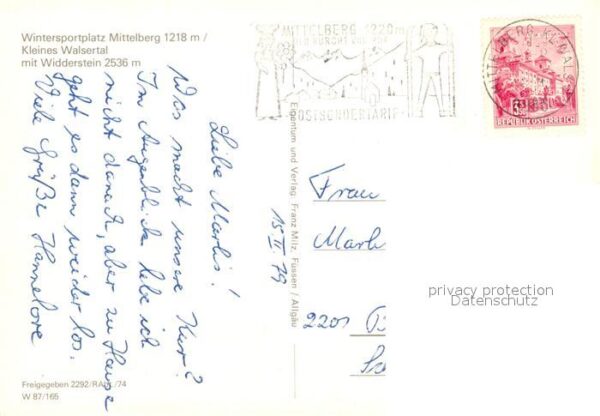 Wintersportplatz Mittelberg 1218 m /
Kleines Walsertal
mit Widderstein 2536 m
MITTELBERG 1220m
POSTSONDERTARIF
MITTELBERG, KLEINWALSERTAL
REPUBLIK ÖSTERREICH
Eigentum und Verlag: Franz Milz, Füssen / Allgäu
15. II. 79
Liebe Marlis!
Was macht unsere Kur?
Im Augenblick lebe ich
nicht danach, aber zu Hause
geht es dann weiter los.
Viele Grüße Hannelore
Frau
Marl
2201
privacy protection
Datenschutz
Freigegeben 2292/RAbt./74
W 87/165